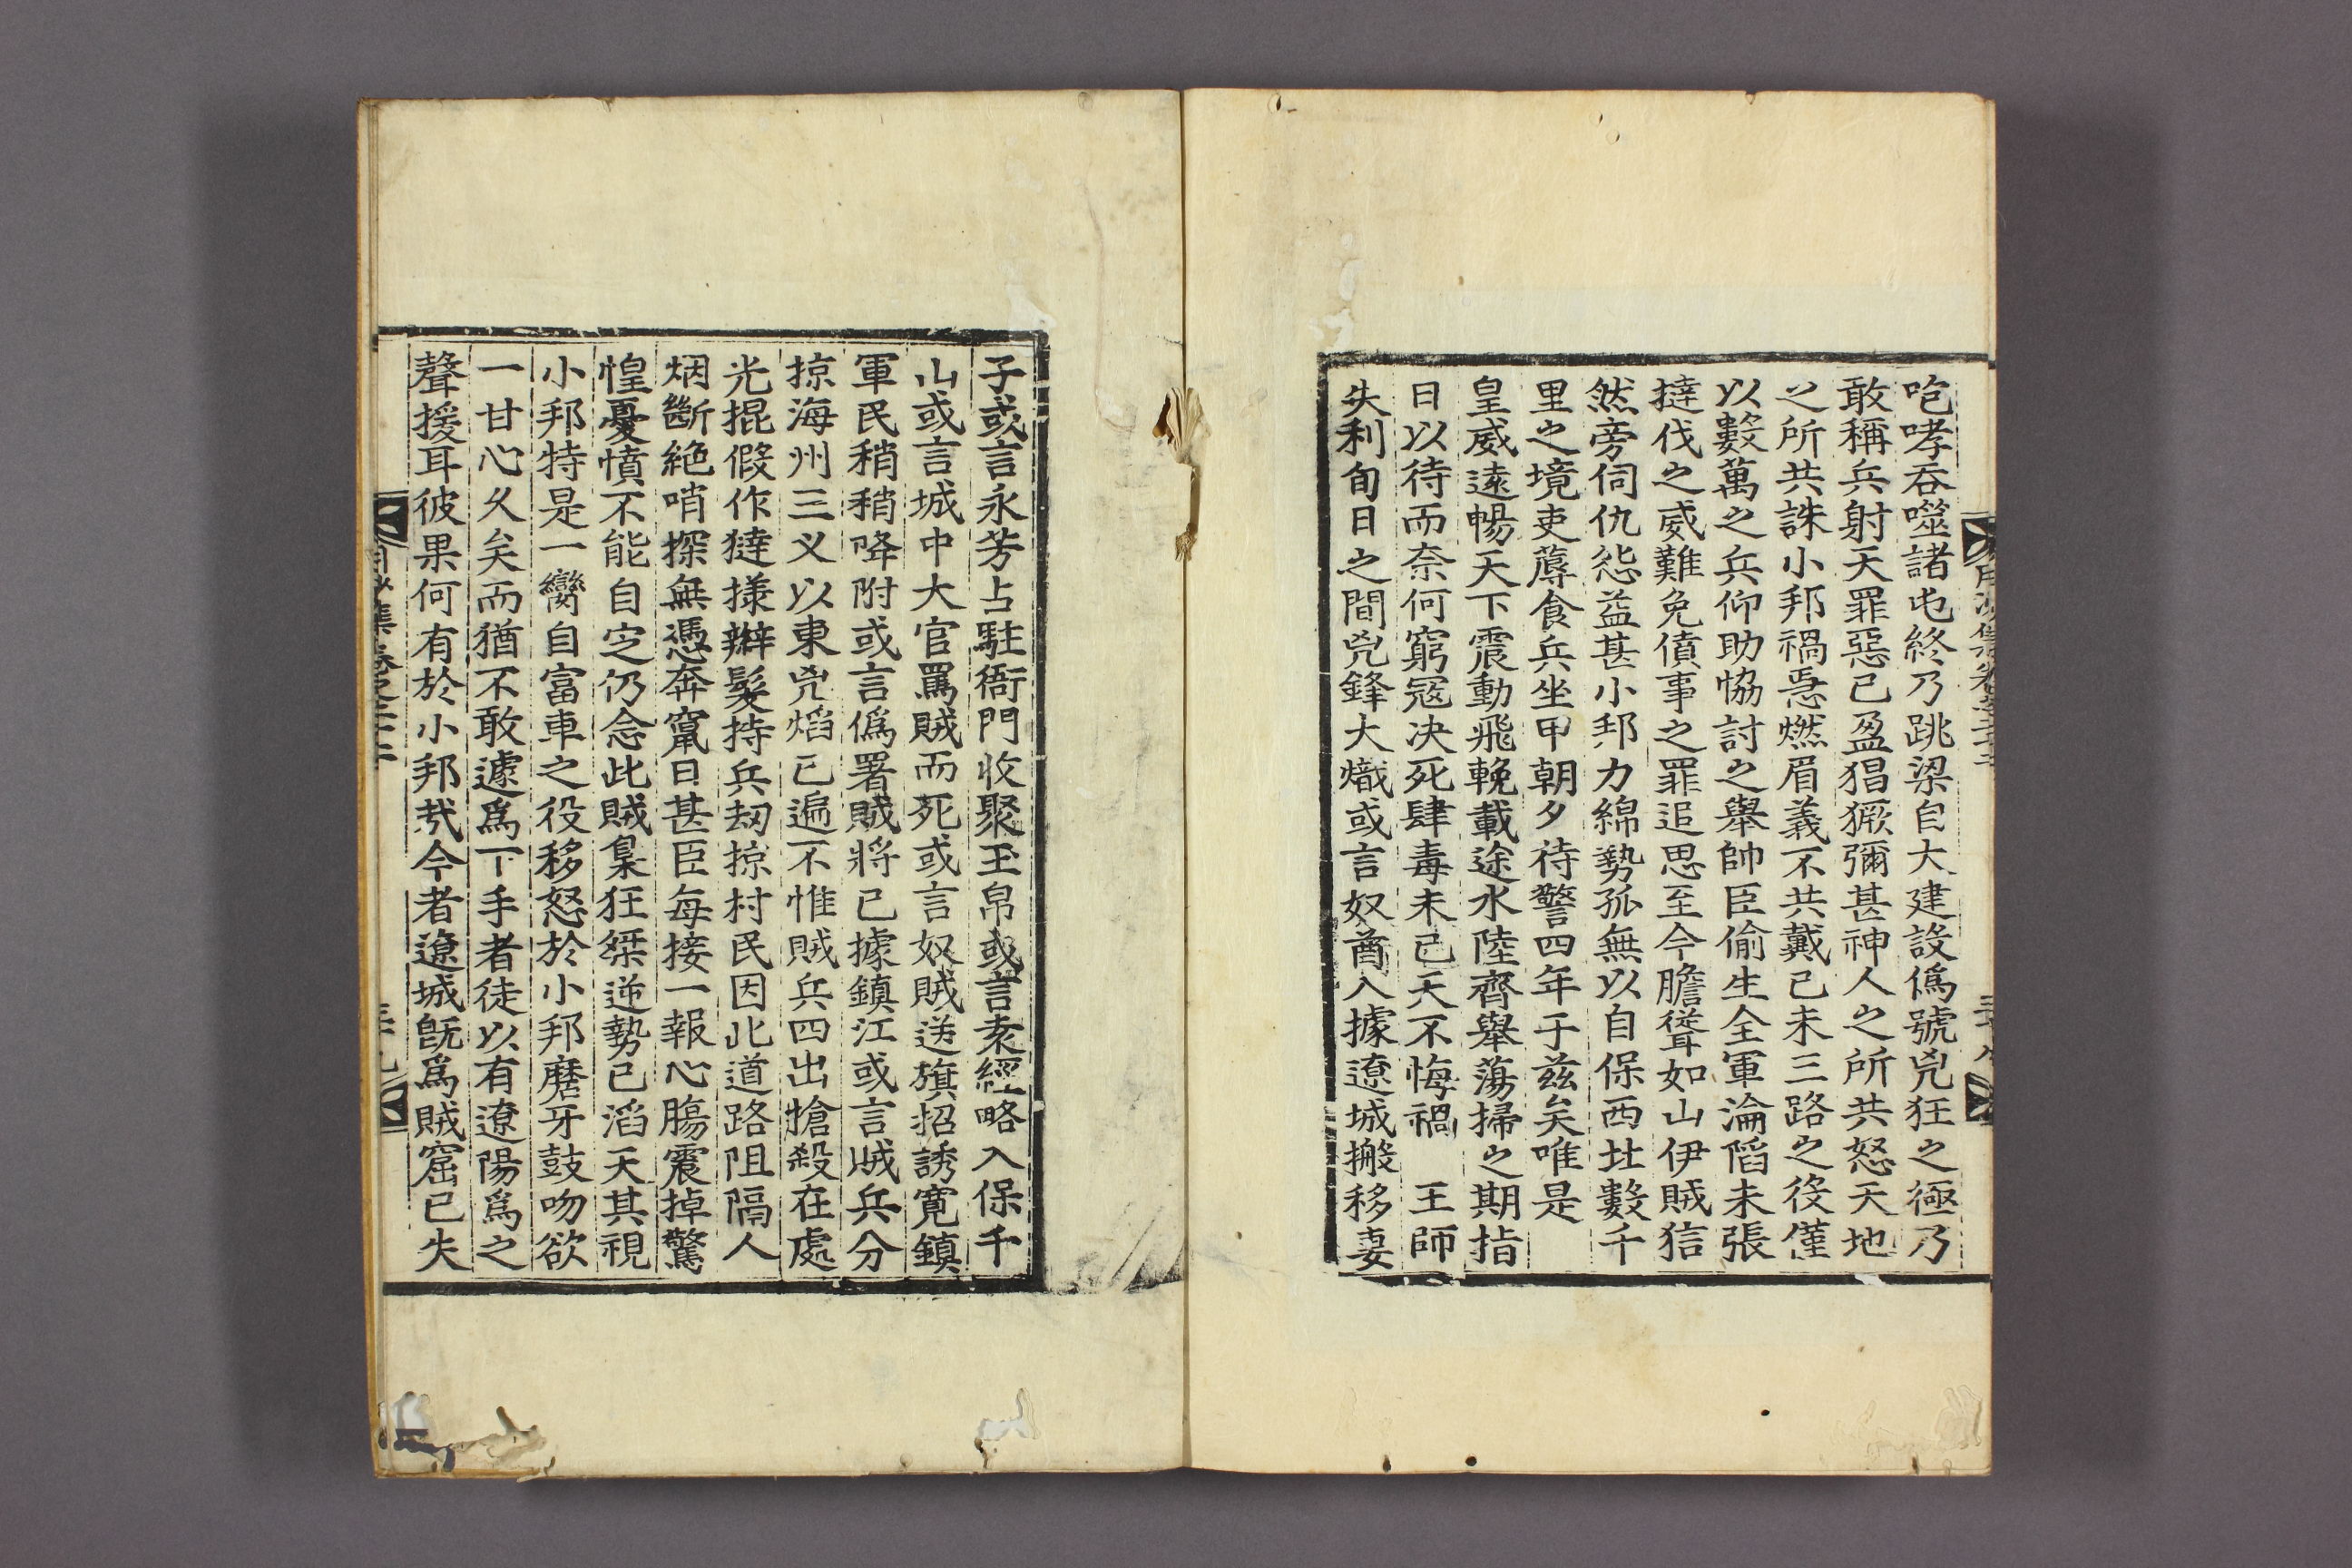 咆哮吞噬諸屯終乃跳梁自大建設僞號兇狂之極乃
敢稱兵射天罪惡已盈猖獗彌甚神人之所共怒天地
之所共誅小邦禍急燃眉義不共戴己未三路之役僅
以數萬之兵仰助恊討之舉帥臣偷生全軍淪陷未張
撻伐之威難免僨事之罪追思至今膽聳如山伊賊狺
然旁伺仇怨益甚小邦力綿勢孤無以自保西北數千
里之境吏蓐食兵坐甲朝夕待警四年于兹矣唯是
皇威遠暢天下震動飛輓載途水陸齊舉蕩掃之期指
日以待而奈何窮寇决死肆毒未已天不悔禍　王師
失利旬日之間兇鋒大熾或言奴酋入據遼城搬移妻
子或言永芳占駐衙門收聚玉帛或言袁經略入保千
山或言城中大官罵賊而死或言奴賊送旗招誘寬鎮
軍民稍稍降附或言僞署賊將已據鎮江或言賊兵分
掠海州三义以東兇焰已遍不惟賊兵四出搶殺在處
光掍假作㺚㨾辮髮持兵刼掠村民因此道路阻隔人
烟斷絶哨探無憑奔竄日甚臣每接一報心膓震掉驚
惶憂憤不能自㝎仍念此賊梟狂桀逆勢已滔天其視
小邦特是一臠自富車之役移怒於小邦磨牙鼓吻欲
一甘心久矣而猶不敢遽爲下手者徒以有遼陽爲之
聲援耳彼果何有於小邦㢤今者遼城旣爲賊窟已失